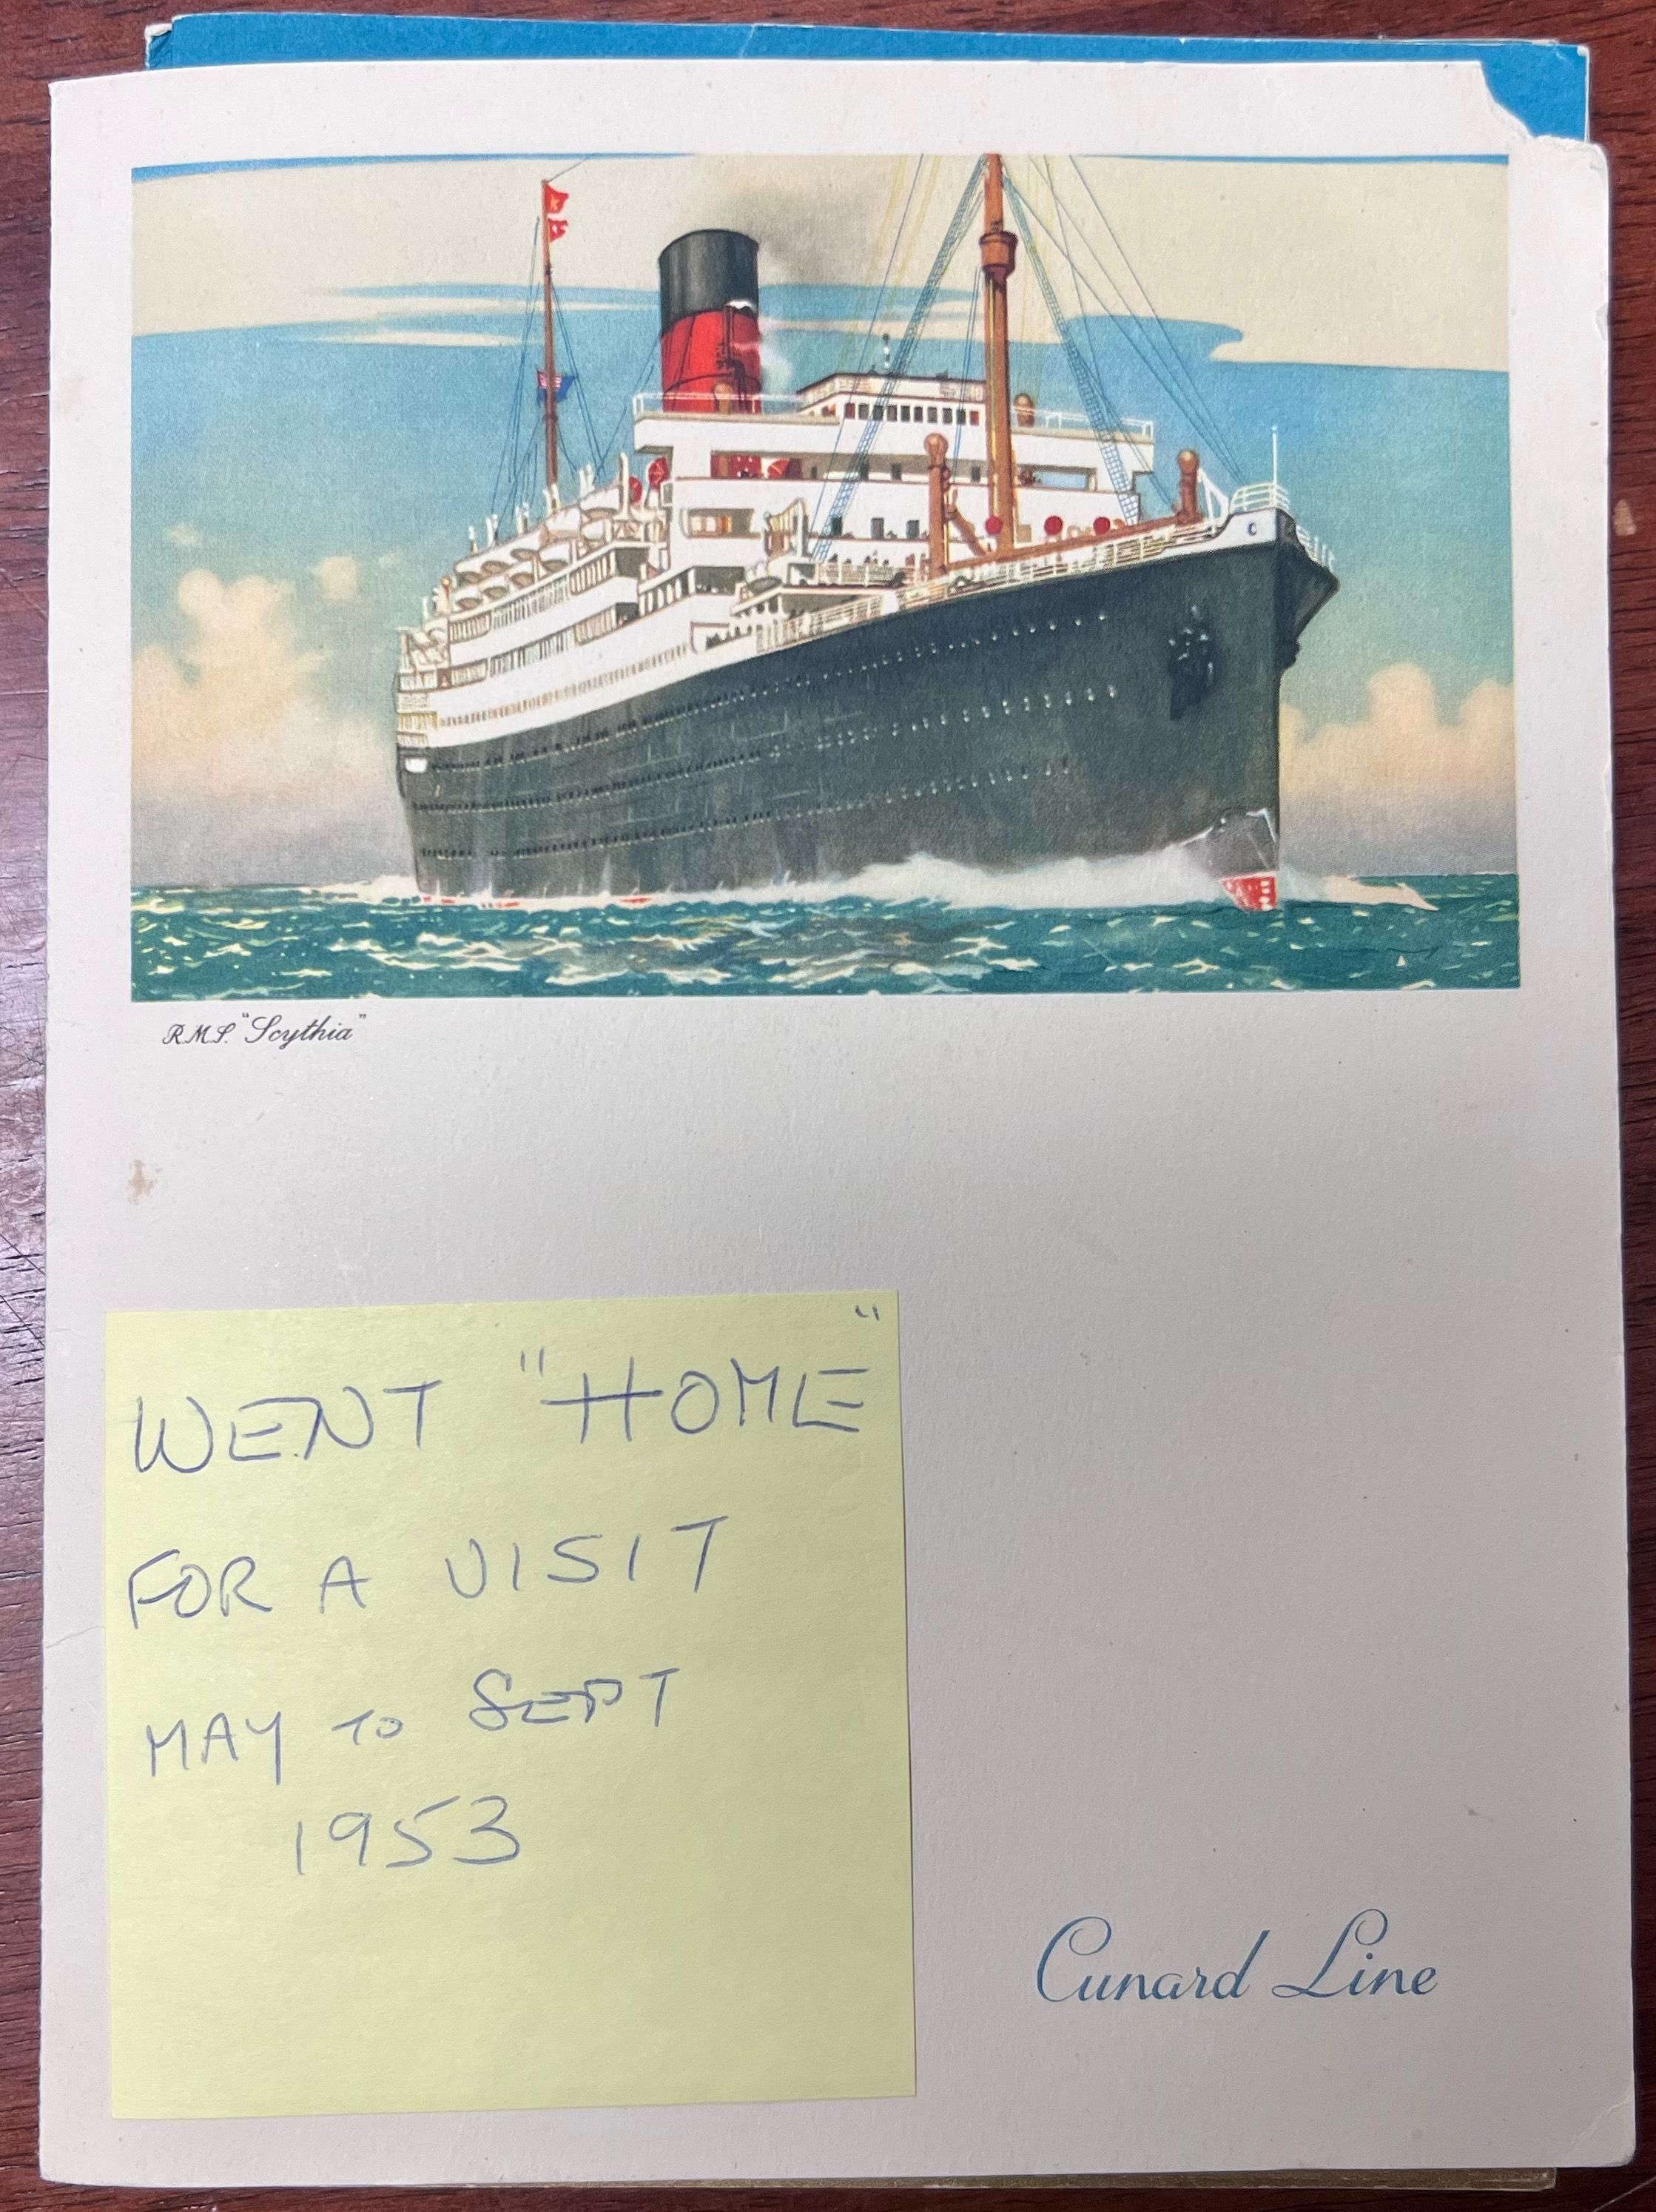 R.M.S. "Scythia"
WENT "HOME"
FOR A VISIT
MAY TO SEPT
1953
Cunard Line